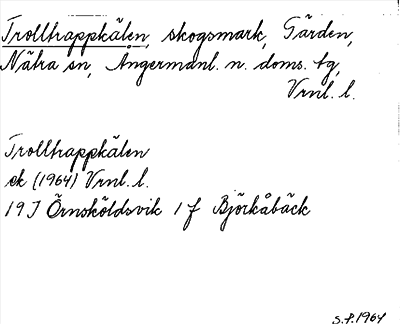 Trolltrappkälen, skogsmark, Gärden,
Nätra sn, Ångermanl. n. doms. tg,
Vrnl. l.
Trolltrappkälen
ek (1964) Vrnl. l.
19 J Örnsköldsvik 1 f Björkåbäck
S.P. 1964